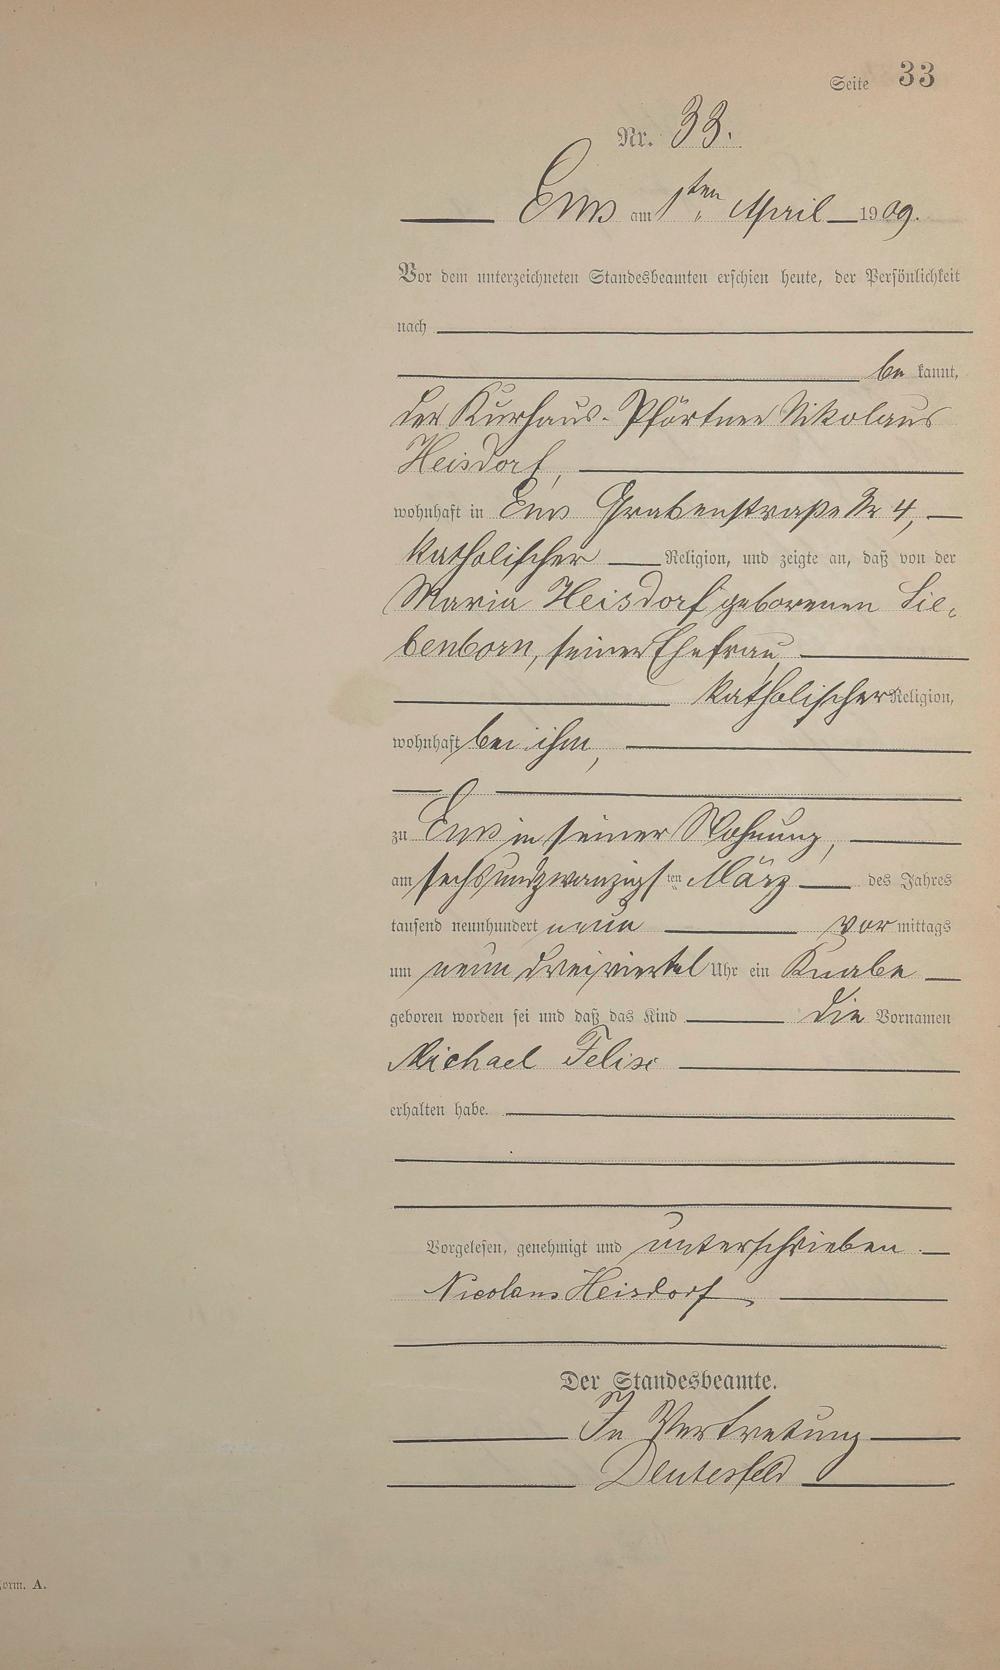 Seite 33
Nr. 33.
Ems am 1ten April 1909.
Vor dem unterzeichneten Standesbeamten erschien heute, der Persönlichkeit
nach
be kannt,
der Kurhaus-Pförtner Nikolaus
Heisdorf,
wohnhaft in Ems Grabenstraße Nr 4,
katholischer Religion, und zeigte an, daß von der
Maria Heisdorf geborenen Lie-
benborn, seiner Ehefrau,
katholischer Religion,
wohnhaft bei ihm,
zu Ems in seiner Wohnung,
am sechsundzwanzigsten März des Jahres
tausend neunhundert neun vor mittags
um neun dreiviertel Uhr ein Knabe
geboren worden sei und daß das Kind die Vornamen
Michael Felix
erhalten habe.
Vorgelesen, genehmigt und unterschrieben.
Nicolaus Heisdorf
Der Standesbeamte.
In Vertretung
orm. A.